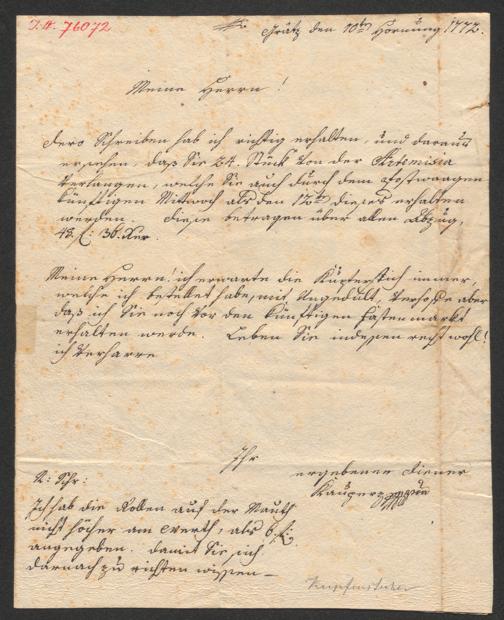 I.N. 76072
Grätz den 10ten Hornung 1772.
Meine Herrn!
Dero Schreiben hab ich richtig erhalten, und daraus
ersehen, daß Sie 24. Stück von der Artemisia
verlangen, welche Sie auch durch den Postwaagen
künftigen Mittwoch als den 12ten dieses erhalten
werden. Diese betragen über allen Abzug,
43. f: 36. Xer.
Meine Herrn! ich erwarte die Kupferstich immer,
welche ich bestellet habe, mit Ungedult, verhoffe aber
daß ich Sie noch vor den künftigen Fastenmarkt
erhalten werde. Leben Sie indessen recht wohl!
ich verharre
Ihr
ergebener Diener
Kauperz
N: Schr:
Ich hab die Rollen auf der Mauth
nicht höcher am Werth, als 6 f:
angegeben. damit Sie sich
darnach zu richten wissen –
Kupferstecher